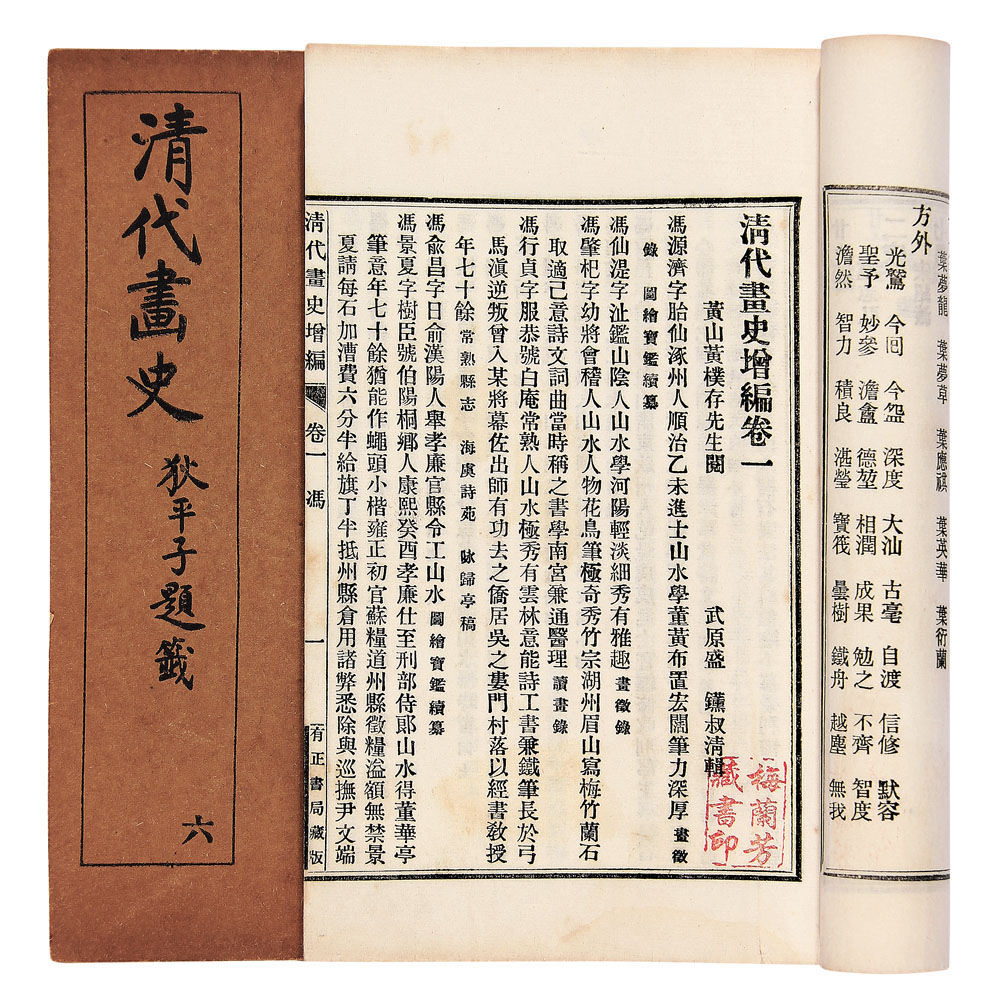 清代畫史
狄平子題籤
六
葉夢龍 葉夢草 葉應祺 葉英華 葉衍蘭
方外
光鷲 今囘 今盌 深度 大汕 古毫 自渡 信修 默容
聖予 妙參 澹盦 德堃 相潤 成果 勉之 不齊 智度
澹然 智力 積良 湛瑩 寶筏 曇樹 鐵舟 越塵 無我
清代畫史增編卷一
黃山黃樸存先生閱 武原盛 鑂叔淸輯
梅蘭芳
藏書印
馮源濟字胎仙涿州人順治乙未進士山水學董黃布置宏闊筆力深厚 畫徵
錄 圖繪寶鑑續纂
馮仙湜字沚鑑山陰人山水學河陽輕淡細秀有雅趣 畫徵錄
馮肇杞字幼將會稽人山水人物花鳥筆極奇秀竹宗湖州眉山寫梅竹蘭石
取適己意詩文詞曲當時稱之書學南宮兼通醫理 讀畫錄
馮行貞字服恭號白庵常熟人山水極秀有雲林意能詩工書兼鐵筆長於弓
馬滇逆叛曾入某將幕佐出師有功去之僑居吳之婁門村落以經書敎授
年七十餘 常熟縣志 海虞詩苑 咏歸亭稿
馮兪昌字日俞漢陽人舉孝廉官縣令工山水 圖繪寶鑑續纂
馮景夏字樹臣號伯陽桐鄉人康熙癸酉孝廉仕至刑部侍郎山水得董華亭
筆意年七十餘猶能作蠅頭小楷雍正初官蘇糧道州縣徵糧溢額無禁景
夏請每石加漕費六分半給旗丁半抵州縣倉用諸弊悉除與巡撫尹文端
清代畫史增編 卷一 馮 一 有正書局藏版